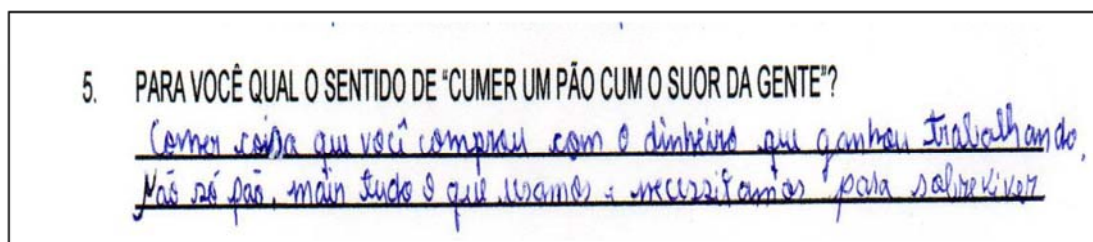 5. PARA VOCÊ QUAL O SENTIDO DE "CUMER UM PÃO CUM O SUOR DA GENTE"?
Comer coisa que você comprou com o dinheiro que ganhou trabalhando,
Não só pão, main tudo o que usamos e necessitamos para sobreviver